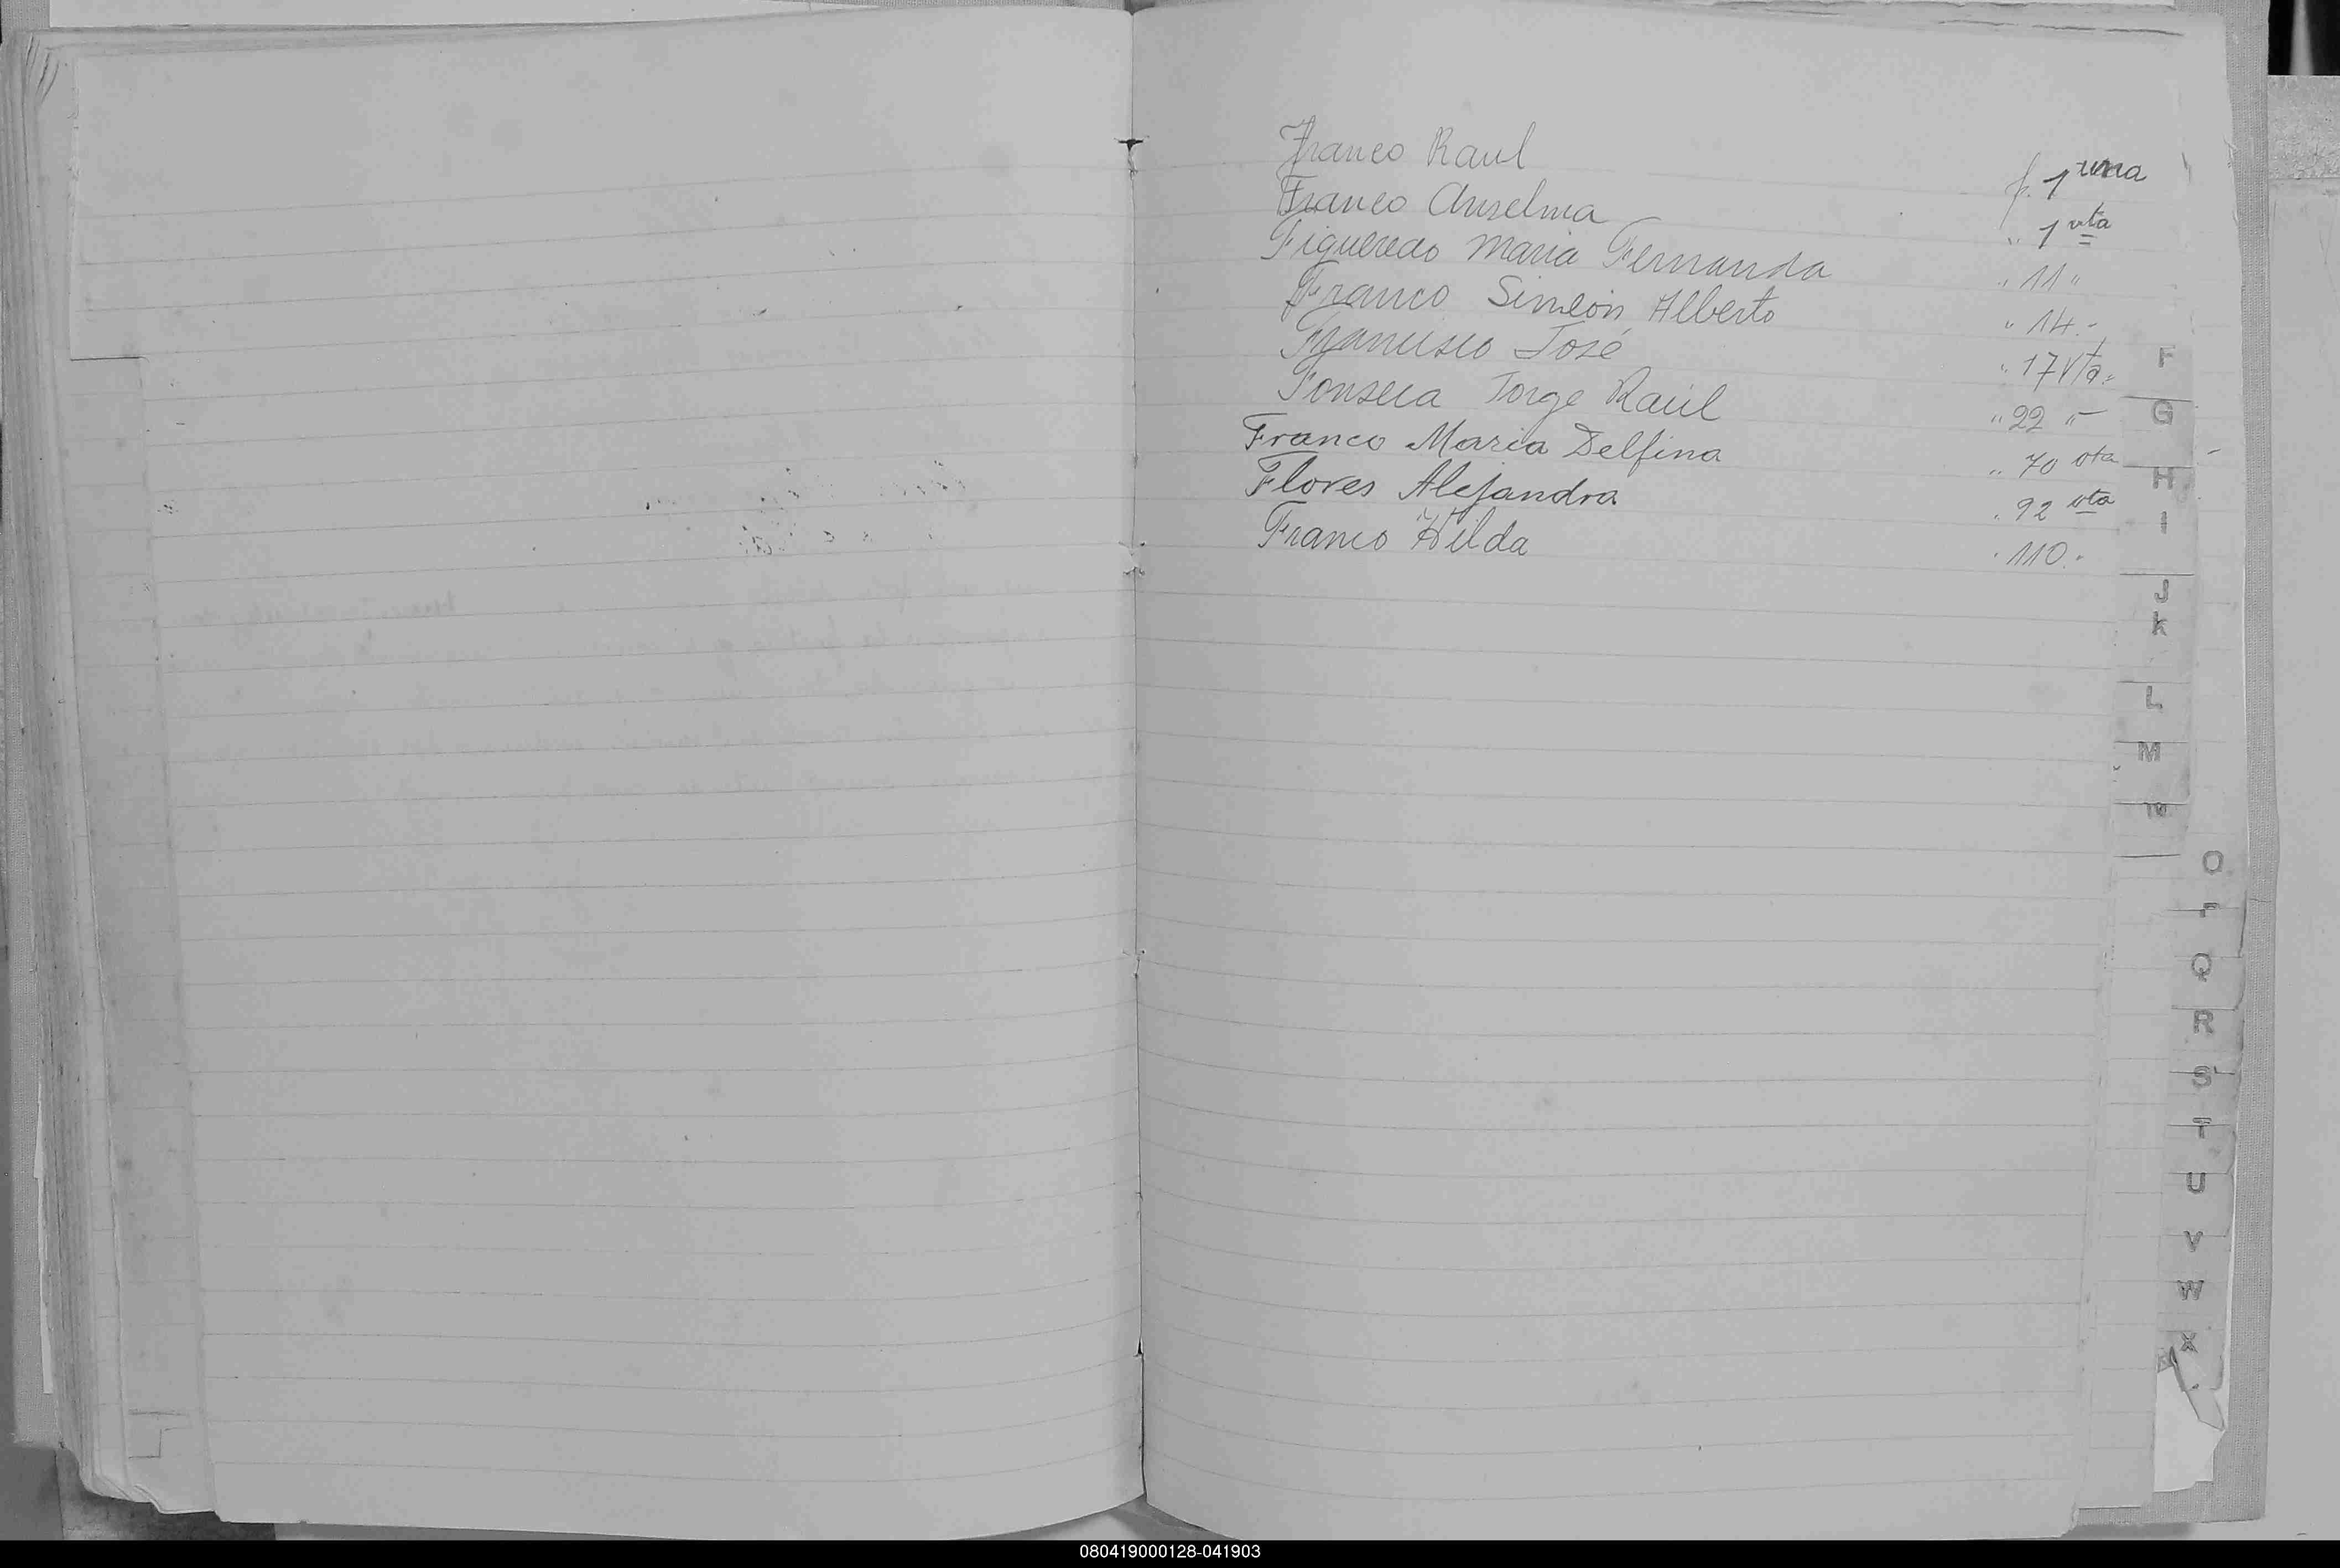 Franco Raul f. 1 una
Franco Anselma " 1 vta
Figueredo Maria Fernanda " 11 "
Franco Simeón Alberto " 14.-
Francisco José " 17 Vta.
Fonseca Jorge Raúl " 22 "-
Franco Maria Delfina " 70 vta
Flores Alejandra " 92 vta
Franco Hilda " 110.-
F
G
H
I
J
K
L
M
N
O
P
Q
R
S
T
U
V
W
X
080419000128-041903